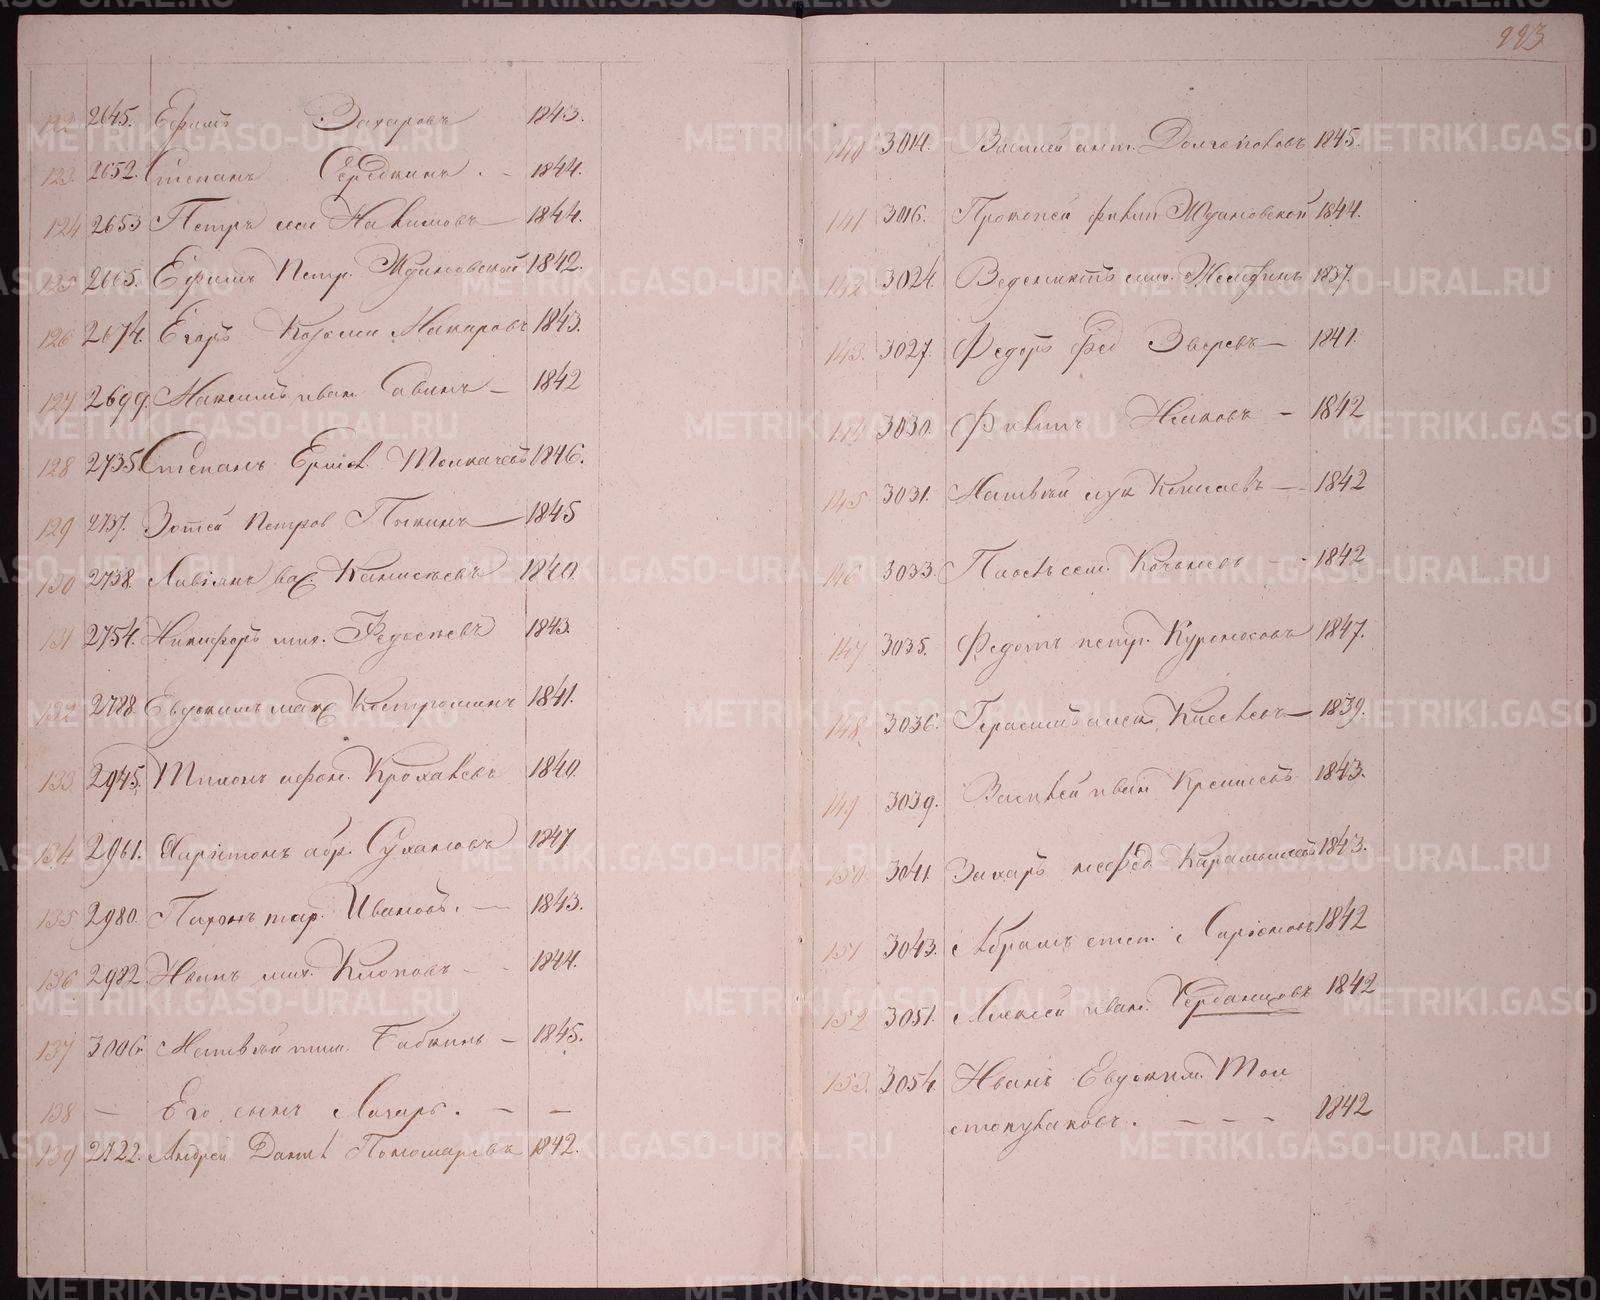 223
122 2645. Ефимъ Захаровъ 1843.
123 2652. Степанъ Середкинъ. - 1844.
124 2653 Петръ сем Накимовъ 1844.
125 2665. Ефимъ Петр. Ждановской 1842.
126 2674. Егоръ Козьми Макаровъ 1843.
127 2699. Максимъ иван. Савинъ - 1842
128 2735 Степанъ Ермол. Толкачевъ 1846.
129 2737. Зотей Петров 1845
130 2738. 1840.
131 2754. Никифоръ мих. Федосѣевъ 1843.
132 2788. Евдокимъ мак Костроминъ 1841.
133 2945. Тихонъ афон. Крохалевъ 1840.
134 2961. Харитонъ абр. Сухановъ 1847
135 2980. Пахомъ тар. Ивановъ. - 1843.
136 2982 Иванъ мих. Клоповъ - - 1844.
137 3006. Матвѣй тим. Бабкинъ - 1845.
138 - Его сынъ Лазарь. - -
139 2722. Андрей Данил Пономаревъ 1842.
140 3014. Василей ант. Долгополовъ 1845.
141 3016. Прокопей филип Ждановской 1844.
142 3024. Ведениктъ мих. 1837.
143. 3027. Федоръ фед Зверевъ - 1841.
144 3030. Филипъ - 1842
145 3031. Матвѣй лук - 1842
146 3033. сем. - 1842
147 3035. Федотъ петр. Куроносовъ 1847.
148. 3036. Герасимъ алек Киселевъ - 1839.
149 3039. Василей иван 1843.
150 3041. Захаръ Карамышевъ 1843.
151 3043. Абрамъ степ. Ларионовъ 1842
152 3051. Алексей иван. 1842
153. 3054. Иванъ Евдоким. Тол
стокулаковъ. - - - 1842
METRIKI.GASO-URAL.RU